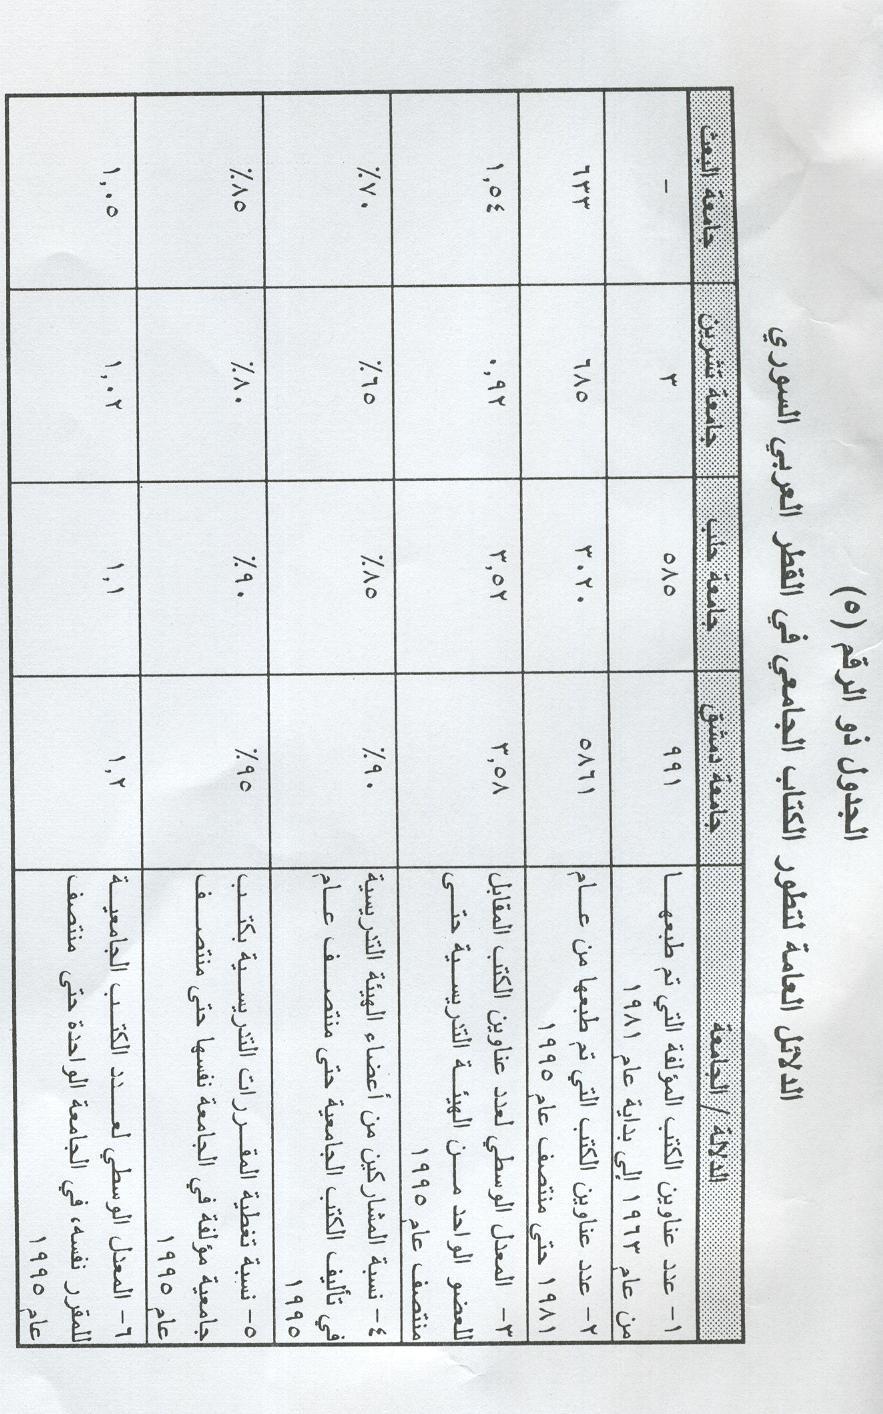 الجدول ذو الرقم (٥)
الدلائل العامة لتطور الكتاب الجامعي في القطر العربي السوري
الدلالة / الجامعة جامعة دمشق جامعة حلب جامعة تشرين جامعة البعث
١- عدد عناوين الكتب المؤلفة التي تم طبعها ٩٩١ ٥٨٥ ٣ -
من عام ١٩٦٣ إلى بداية عام ١٩٨١
٢- عدد عناوين الكتب التي تم طبعها من عام ٥٨٦١ ٣٠٢٠ ٦٨٥ ٦٣٣
١٩٨١ حتى منتصف عام ١٩٩٥
٣- المعدل الوسطي لعدد عناوين الكتب المقابل ٣,٥٨ ٣,٥٢ ٠,٩٢ ١,٥٤
للعضو الواحد من الهيئة التدريسية حتى
منتصف عام ١٩٩٥
٤- نسبة المشاركين من أعضاء الهيئة التدريسية ٩٠٪ ٨٥٪ ٦٥٪ ٧٠٪
في تأليف الكتب الجامعية حتى منتصف عام
١٩٩٥
٥- نسبة تغطية المقررات التدريسية بكتب ٩٥٪ ٩٠٪ ٨٠٪ ٨٥٪
جامعية مؤلفة في الجامعة نفسها حتى منتصف
عام ١٩٩٥
٦- المعدل الوسطي لعدد الكتب الجامعية ١,٢ ١,١ ١,٠٢ ١,٠٥
للمقرر نفسه، في الجامعة الواحدة حتى منتصف
عام ١٩٩٥